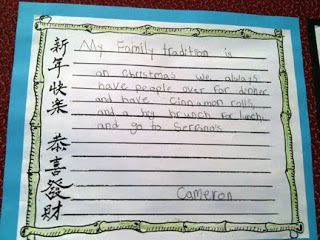 新年快樂
恭喜發財
My Family tradition is
on christmas we always
have people over for dinner
and have cinnamon rolls,
and a big brunch for lunch,
and go to Serrano's.
Cameron